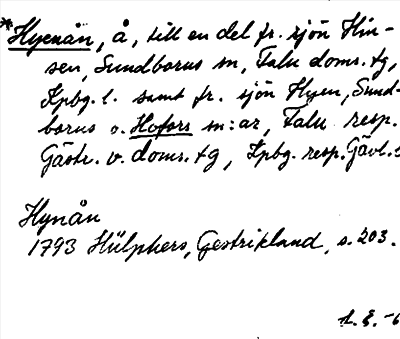 *Hyenån, å, till en del fr. sjön Hin-
sen, Sundborns sn, Falu doms. tg,
Kpbg. l. samt fr. sjön Hyen, Sund-
borns o. Hofors sn:ar, Falu resp.
Gästr. v. doms. tg, Kpbg. resp. Gävl. l
Hynån
1793 Hülphers, Gestrikland, s. 203.